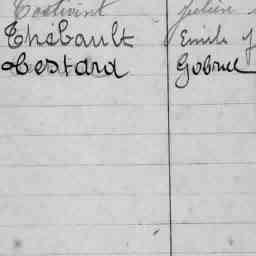 Costivint Julien
Thébault Emile J
Testard Gabriel